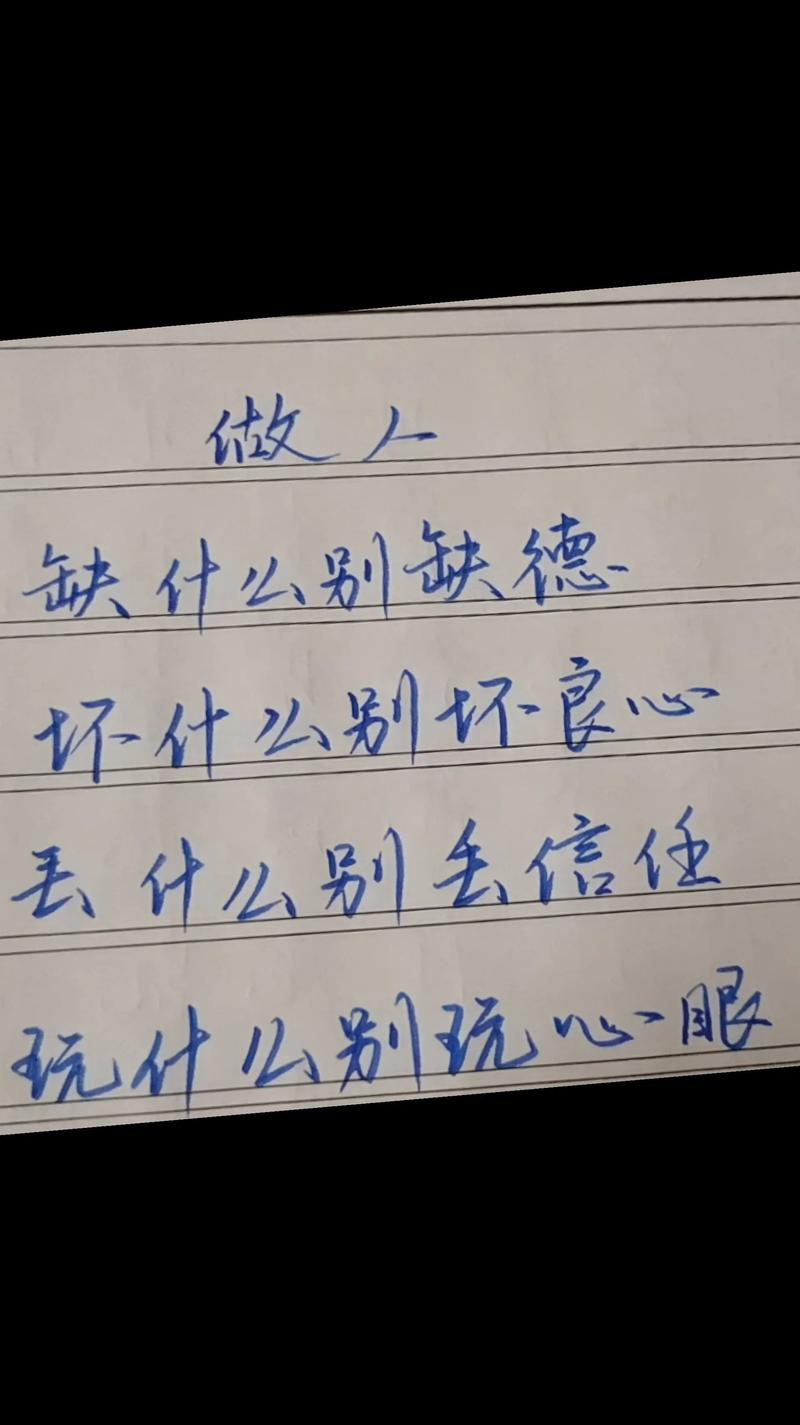 做人
缺什么别缺德
坏什么别坏良心
丢什么别丢信任
玩什么别玩心眼